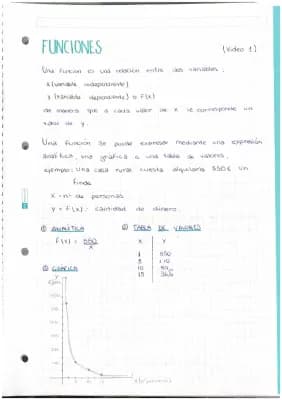 FUNCIONES
(Video 1)
Una función es una relación entre dos variables,
X (variable independiente)
Y (variable dependiente) o F(X)
de manera que a cada valor de X le corresponde un
valor de Y.
Una función se puede expresar mediante una expresión
analítica, una gráfica o una tabla de valores.
ejemplo: Una casa rural cuesta alquilarla 550€ un
finde
X = nº de personas
Y = F(X) = cantidad de dinero.
① ANALÍTICA
F(X) = 550
X
② TABLA DE VALORES
X Y
1 550
5 110
10 55
15
③ GRÁFICA
Y
X (nº personas)